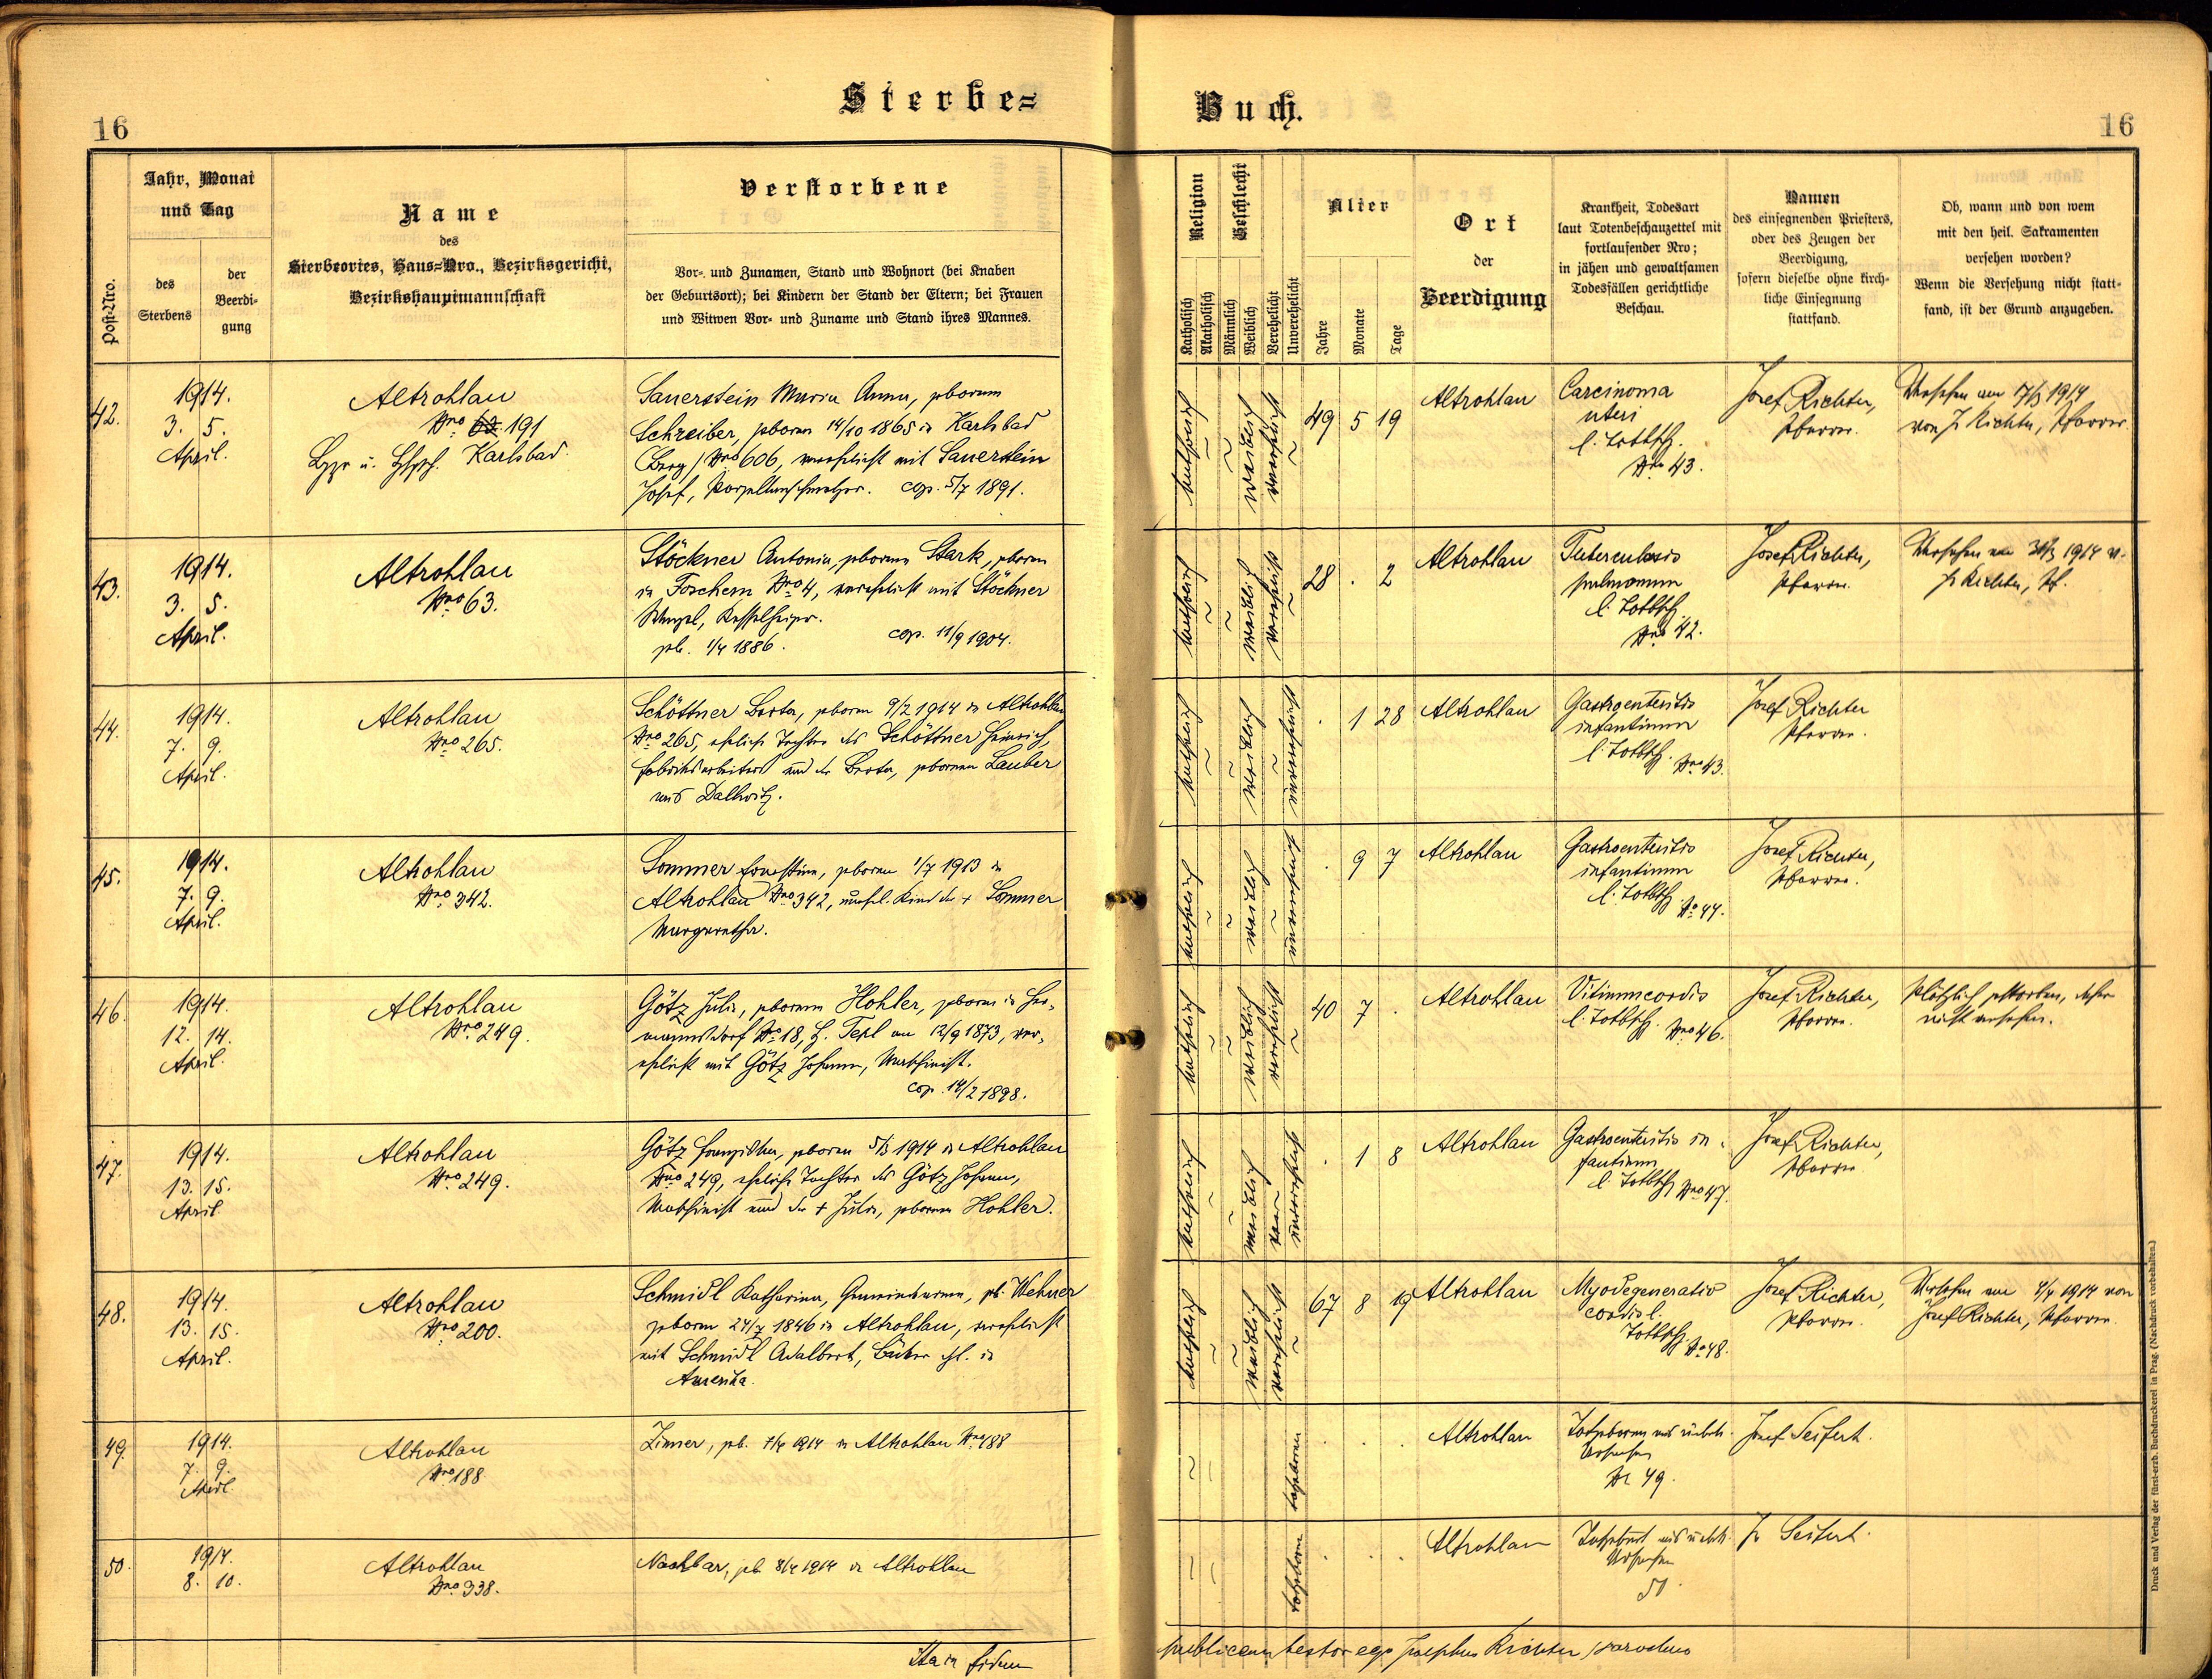 Sterbe=
Buch.
16
16
Post-Nro.
Jahr, Monat
und Tag
des
Sterbens
der
Beerdi-
gung
Name
des
Sterbeortes, Haus=Nro., Bezirksgericht,
Bezirkshauptmannschaft
Verstorbene
Vor- und Zunamen, Stand und Wohnort (bei Knaben
der Geburtsort); bei Kindern der Stand der Eltern; bei Frauen
und Witwen Vor- und Zuname und Stand ihres Mannes.
Religion
Katholisch
Akatholisch
Geschlecht
Männlich
Weiblich
Verehelicht
Unverehelicht
Alter
Jahre
Monate
Tage
Ort
der
Beerdigung
Krankheit, Todesart
laut Totenbeschauzettel mit
fortlaufender Nro;
in jähen und gewaltsamen
Todesfällen gerichtliche
Beschau.
Namen
des einsegnenden Priesters,
oder des Zeugen der
Beerdigung,
sofern dieselbe ohne kirch-
liche Einsegnung
stattfand.
Ob, wann und von wem
mit den heil. Sakramenten
versehen worden?
Wenn die Versehung nicht statt-
fand, ist der Grund anzugeben.
42.
1914.
3. 5.
April.
Altrohlau
Nro 63 191
Karlsbad.
Sauerstein Maria Anna, geborene
Schreiber, geboren 14/10 1865 in Karlsbad
(Berg) Nro 606, verehelicht mit Sauerstein
Josef, cop. 5/7 1891.
katholisch
weiblich
verehelicht
49 5 19
Altrohlau
Carcinoma
uteri
l. Totbsch.
Nro 43.
Josef Richter,
Pfarrer.
Versehen am 17/3 1914
von J. Richter, Pfarrer.
43.
1914.
3. 5.
April.
Altrohlau
Nro 63.
Stöckner Antonia, geborene Stark, geboren
in Taschern Nro 4, verehelicht mit Stöckner
Wenzel, Kesselheizer.
geb. 1/4 1886. cop. 11/9 1904.
katholisch
weiblich
verehelicht
28 . 2
Altrohlau
Tuberculosis
pulmonum
l. Totbsch.
Nro 42.
Josef Richter,
Pfarrer.
Versehen am 1914 v.
J. Richter, Pf.
44.
1914.
7. 9.
April.
Altrohlau
Nro 265.
Schöttner Berta, geboren 9/2 1914 in Altrohlau
Nro 265, eheliche Tochter des Schöttner Heinrich,
Fabriksarbeiters und der Berta, geborenen Lauber
aus Dallwitz.
katholisch
weiblich
unverehelicht
. 1 28
Altrohlau
Gastroenteritis
infantinum
l. Totbsch. Nro 43.
Josef Richter
Pfarrer.
45.
1914.
7. 9.
April.
Altrohlau
Nro 342.
Sommer Ernestine, geboren 1/7 1913 in
Altrohlau Nro 342, unehel. Kind der + Sommer
Margaretha.
katholisch
weiblich
unverehelicht
. 9 7
Altrohlau
Gastroenteritis
infantinum
l. Totbsch. No 44.
Josef Richter,
Pfarrer.
46.
1914.
12. 14.
April.
Altrohlau
Nro 249.
Götz Julia, geborene Hohler, geboren in Her-
mannsdorf No 18, H. Tepl am 12/9 1873, ver-
ehelicht mit Götz Johann, Maschinist.
cop. 14/2 1898.
katholisch
weiblich
verehelicht
40 7 .
Altrohlau
Vitium cordis
l. Totbsch. Nro 46.
Josef Richter,
Pfarrer.
Plötzlich gestorben, daher
nicht versehen.
47.
1914.
13. 15.
April
Altrohlau
Nro 249.
Götz Franziska, geboren 5/3 1914 in Altrohlau
Nro 249, eheliche Tochter des Götz Johann,
Maschinist und der + Julia, geborenen Hohler.
katholisch
weiblich
unverehelicht
. 1 8
Altrohlau
Gastroenteritis in-
fantinum
l. Totbsch Nro 47.
Josef Richter,
Pfarrer
48.
1914.
13. 15.
April.
Altrohlau
Nro 200.
Schmidl Katharina, Gemeindearme, geb. Wehner
geboren 24/7 1846 in Altrohlau, verehelicht
mit Schmidl Adalbert, Bäcker in
Amerika.
katholisch
weiblich
verehelicht
67 8 19
Altrohlau
Myodegeneratio
cordis l.
Totbsch No 48.
Josef Richter,
Pfarrer.
Versehen am 4/4 1914 von
Josef Richter, Pfarrer.
49.
1914.
7. 9.
April
Altrohlau
Nro 188
Zinner, geb. 7/4 1914 in Altrohlau Nro 188
totgeboren
Altrohlau
Totgeboren aus unbek.
Ursachen
Nr 49.
Josef Seifert.
50.
1914.
8. 10.
Altrohlau
Nro 338.
Nachbar, geb. 8/4 1914 in Altrohlau
totgeboren
Altrohlau
Totgeburt aus unbek.
Ursachen
50.
J. Seifert.
Ita in fidem
publicam testor ego Josephus Richter parochus
Druck und Verlag der fürst-erzb. Buchdruckerei in Prag. (Nachdruck vorbehalten.)